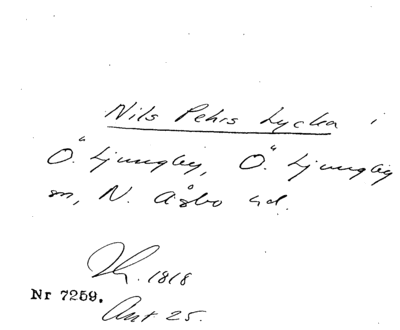 Nils Pehrs Lycka i
Ö. Ljungby, Ö. Ljungby
sn, N. Åsbo hd.
Th. 1818
Nr 7259.
Ant 25.